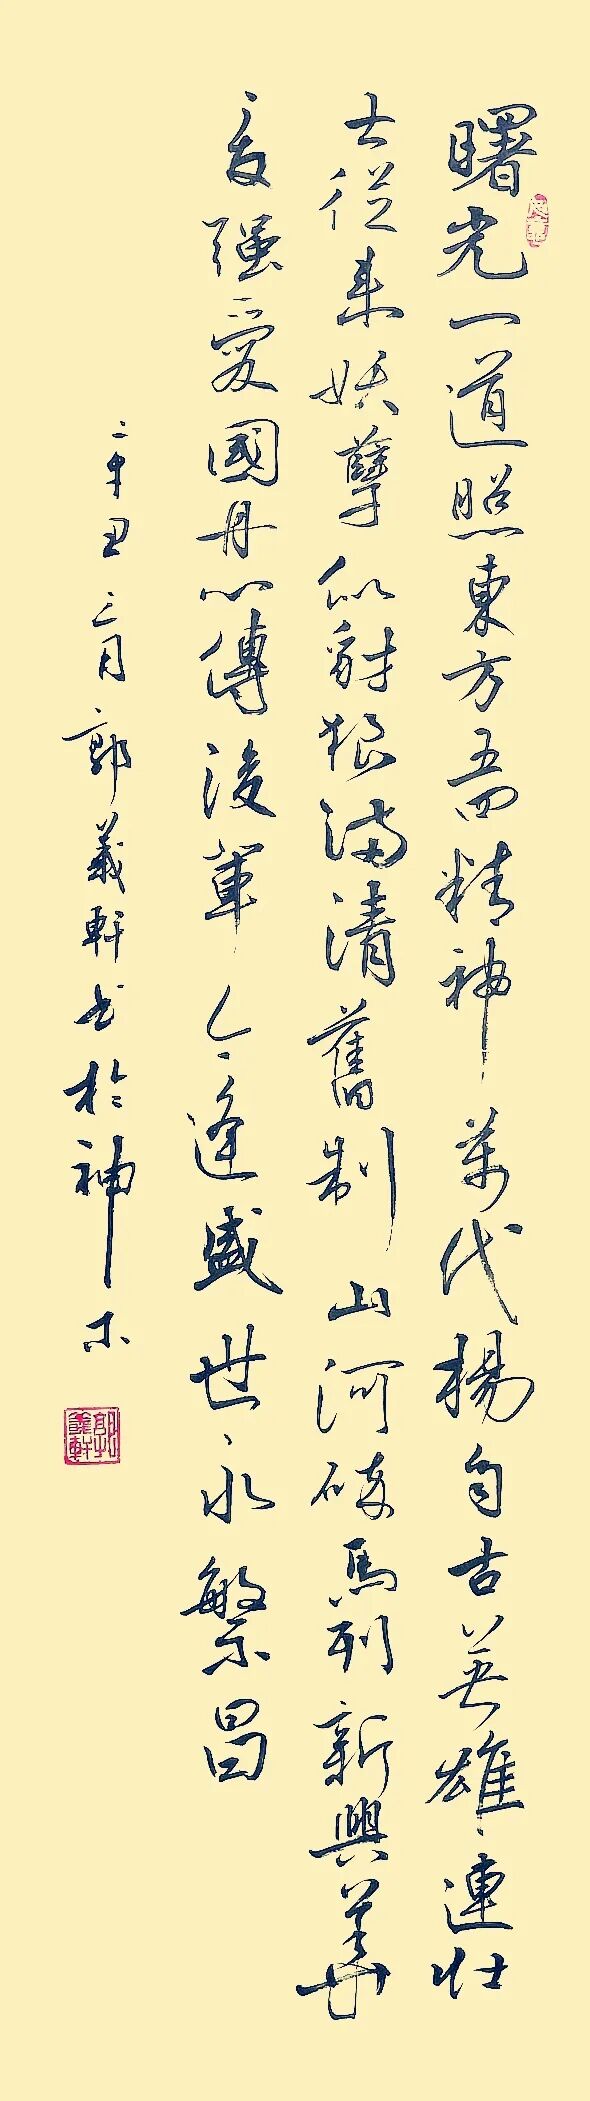 曙光一道照東方五四精神萬代揚自古英雄連壯
士從来妖孽似豺狼滿清舊制山河破馬列新興華
夏强愛國丹心傳後輩今逢盛世永繁昌
辛丑三月郭義軒书於神木
郭義軒